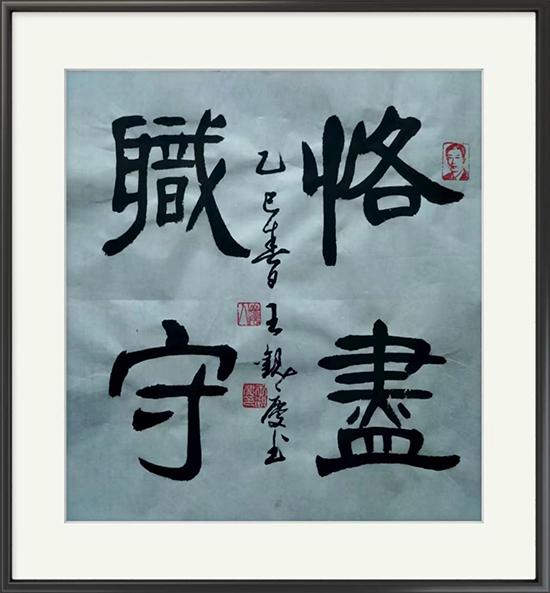 恪盡
職守
乙巳春日王慶书